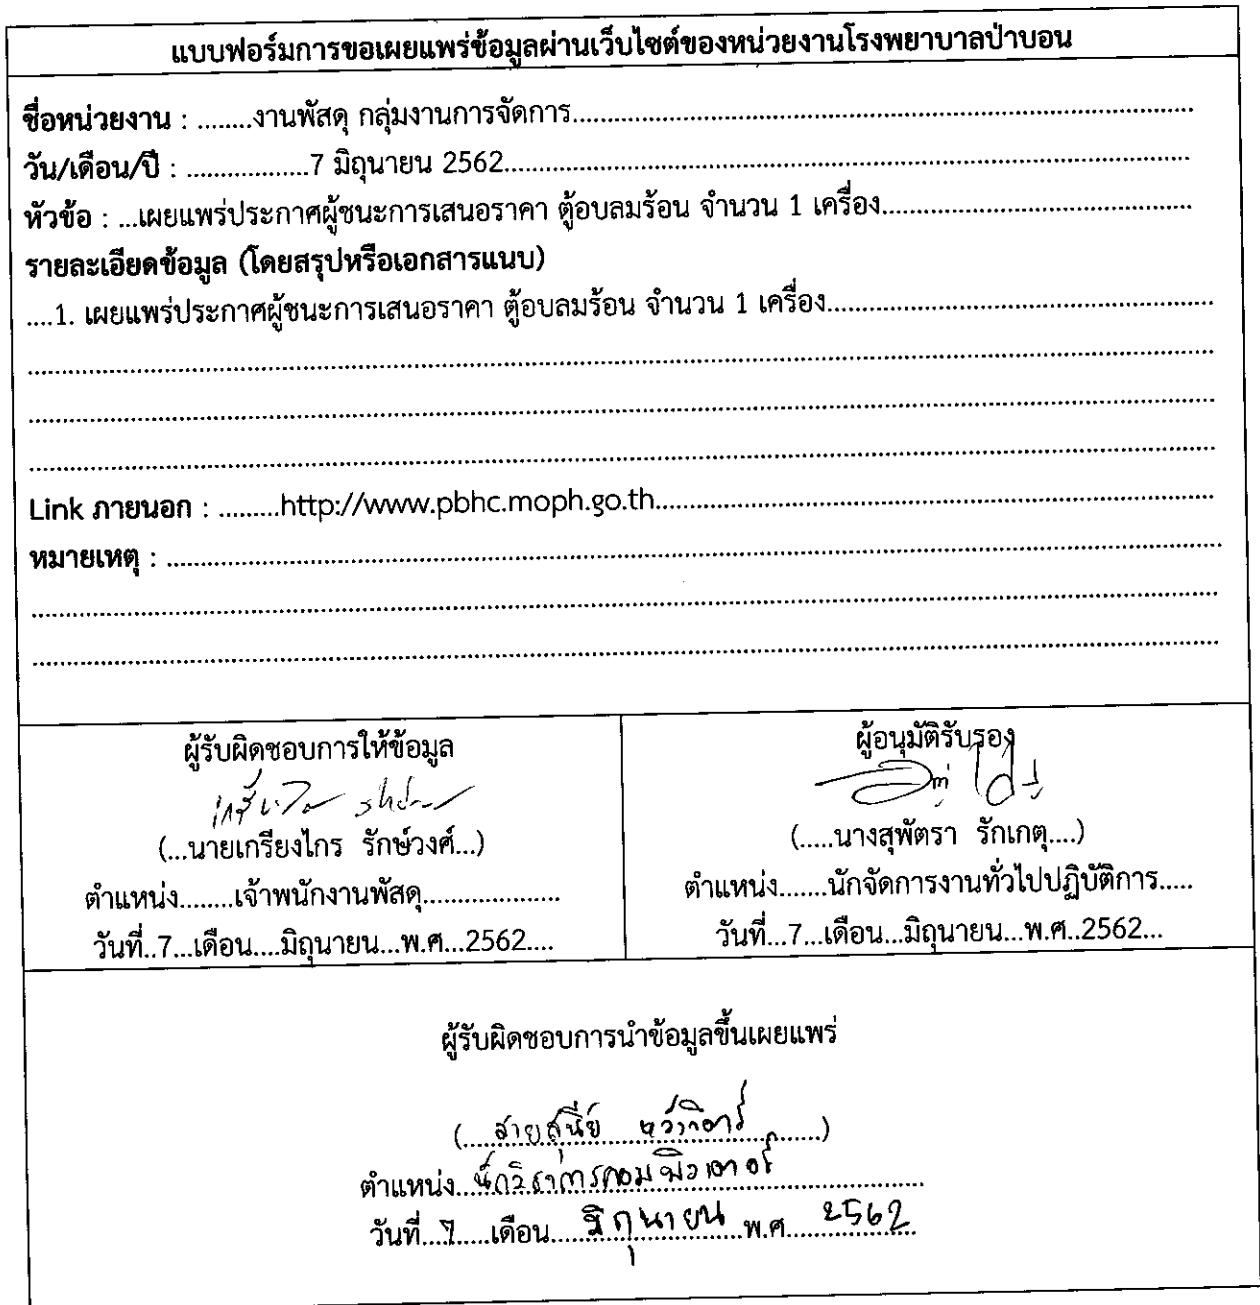 แบบฟอร์มการขอเผยแพร่ข้อมูลผ่านเว็บไซต์ของหน่วยงานโรงพยาบาลป่าบอน
ชื่อหน่วยงาน : ........งานพัสดุ กลุ่มงานการจัดการ........
วัน/เดือน/ปี : ..................7 มิถุนายน 2562........
หัวข้อ : ...เผยแพร่ประกาศผู้ชนะการเสนอราคา ตู้อบลมร้อน จำนวน 1 เครื่อง........
รายละเอียดข้อมูล (โดยสรุปหรือเอกสารแนบ)
....1. เผยแพร่ประกาศผู้ชนะการเสนอราคา ตู้อบลมร้อน จำนวน 1 เครื่อง........
Link ภายนอก : .........http://www.pbhc.moph.go.th........
หมายเหตุ : ........
ผู้รับผิดชอบการให้ข้อมูล
(...นายเกรียงไกร รักษ์วงศ์...)
ตำแหน่ง........เจ้าพนักงานพัสดุ....................
วันที่..7...เดือน....มิถุนายน...พ.ศ...2562....
ผู้อนุมัติรับรอง
(.....นางสุพัตรา รักเกตุ....)
ตำแหน่ง.......นักจัดการงานทั่วไปปฏิบัติการ.....
วันที่...7...เดือน...มิถุนายน...พ.ศ..2562...
ผู้รับผิดชอบการนำข้อมูลขึ้นเผยแพร่
(....สายสุนีย์ ........)
ตำแหน่ง...นักวิชาการคอมพิวเตอร์........
วันที่....7.....เดือน.....มิถุนายน.....พ.ศ.....2562